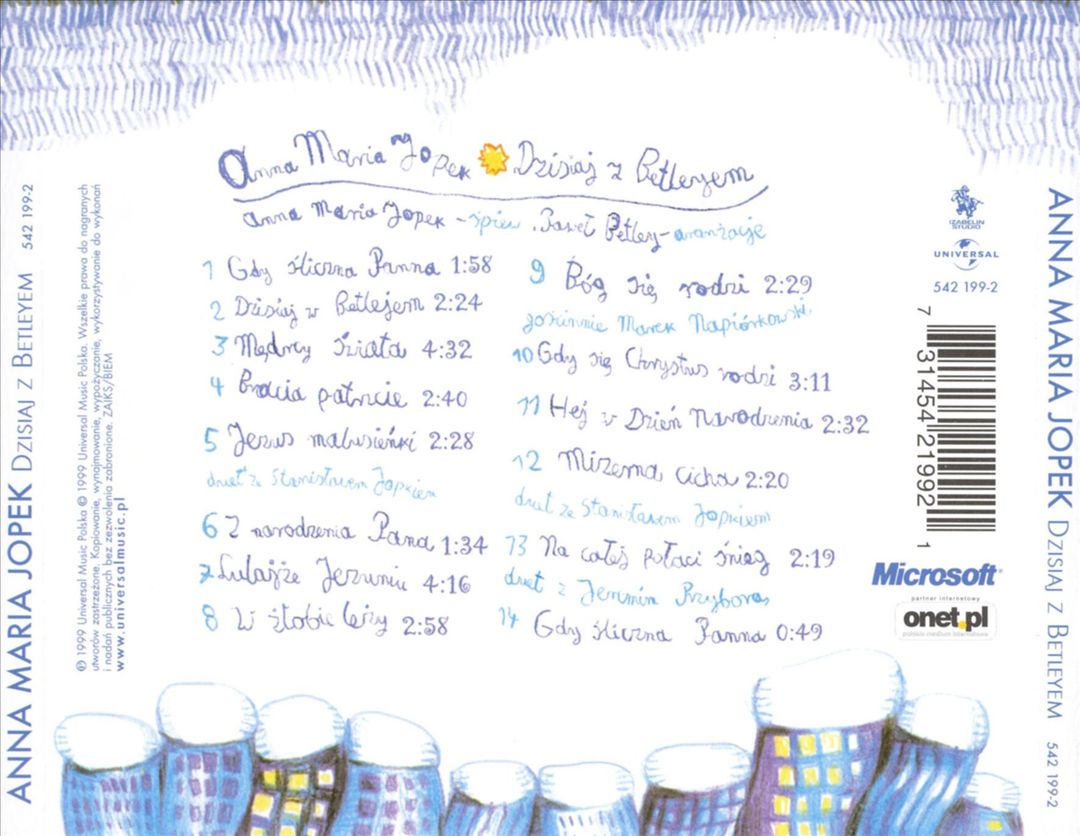 ANNA MARIA JOPEK DZISIAJ Z BETLEYEM 542 199-2
© 1999 Universal Music Polska ℗ 1999 Universal Music Polska. Wszelkie prawa do nagranych
utworów zastrzeżone. Kopiowanie, wynajmowanie, wypożyczanie, wykorzystywanie do wykonań
i nadań publicznych bez zezwolenia zabronione. ZAIKS/BIEM
www.universalmusic.pl
Anna Maria Jopek Dzisiaj z Betleyem
Anna Maria Jopek - śpiew, Paweł Betley - aranżacje
1 Gdy śliczna Panna 1:58
2 Dzisiaj w Betlejem 2:24
3 Mędrcy świata 4:32
4 Bracia patrzcie 2:40
5 Jezus malusieńki 2:28
duet ze Stanisławem Jopkiem
6 Z narodzenia Pana 1:34
7 Lulajże Jezuniu 4:16
8 W żłobie leży 2:58
9 Bóg się rodzi 2:29
gościnnie Marek Napiórkowski
10 Gdy się Chrystus rodzi 3:11
11 Hej w Dzień Narodzenia 2:32
12 Mizerna cicha 2:20
duet ze Stanisławem Jopkiem
13 Na całej połaci śnieg 2:19
duet z Jeremim Przyborą
14 Gdy śliczna Panna 0:49
IZABELIN
STUDIO
UNIVERSAL
542 199-2
7 31454 21992 1
Microsoft
partner internetowy
onet.pl
polskie medium internetowe
ANNA MARIA JOPEK DZISIAJ Z BETLEYEM 542 199-2